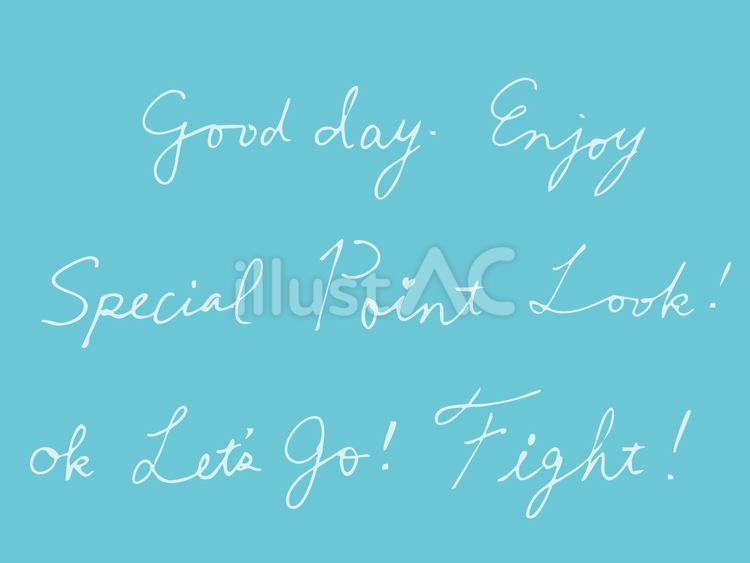 Good day. Enjoy
Special Point Look!
illustAC
ok Let's Go! Fight!